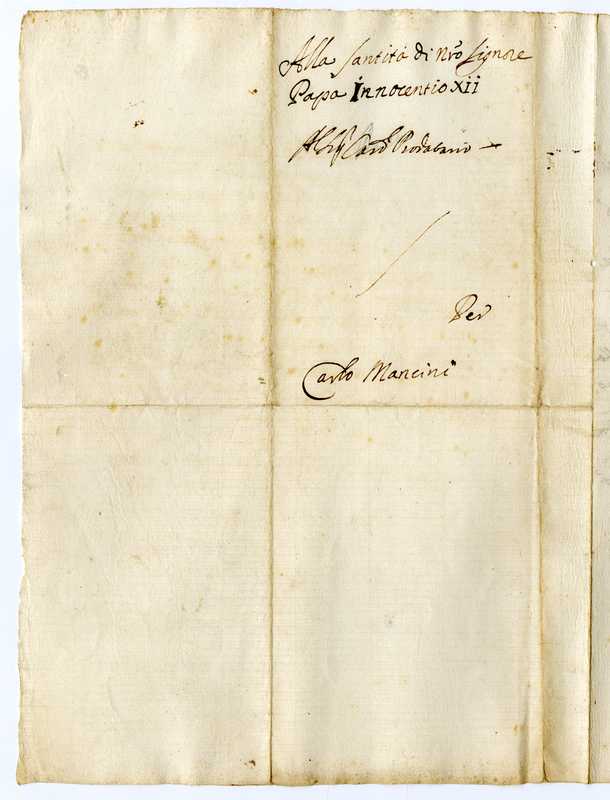 Alla Santità di Nrõ Signore
Papa Innocentio XII
Card. Prodatario
Per
Carlo Mancini